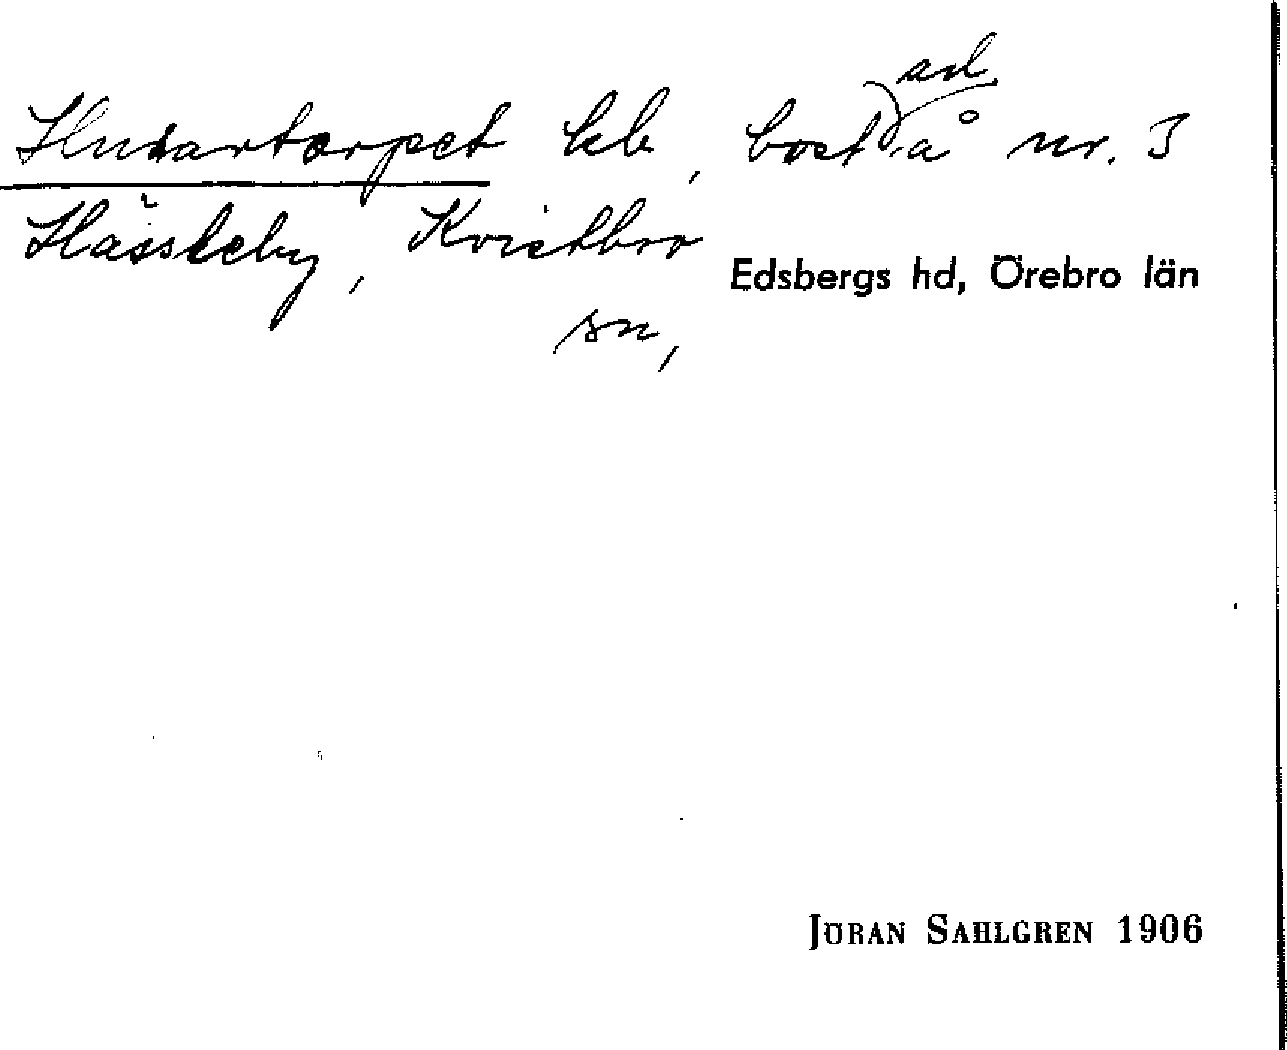 Husartorpet lh, bostad å nr. 3
Hässleby, Kvistbro
sn, Edsbergs hd, Örebro län
JÖRAN SAHLGREN 1906